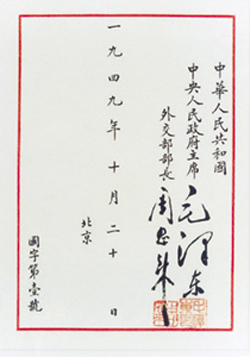 中華人民共和國
中央人民政府主席 毛澤東
外交部部長 周恩來
北京
一九四九年十月二十日
國字第壹號